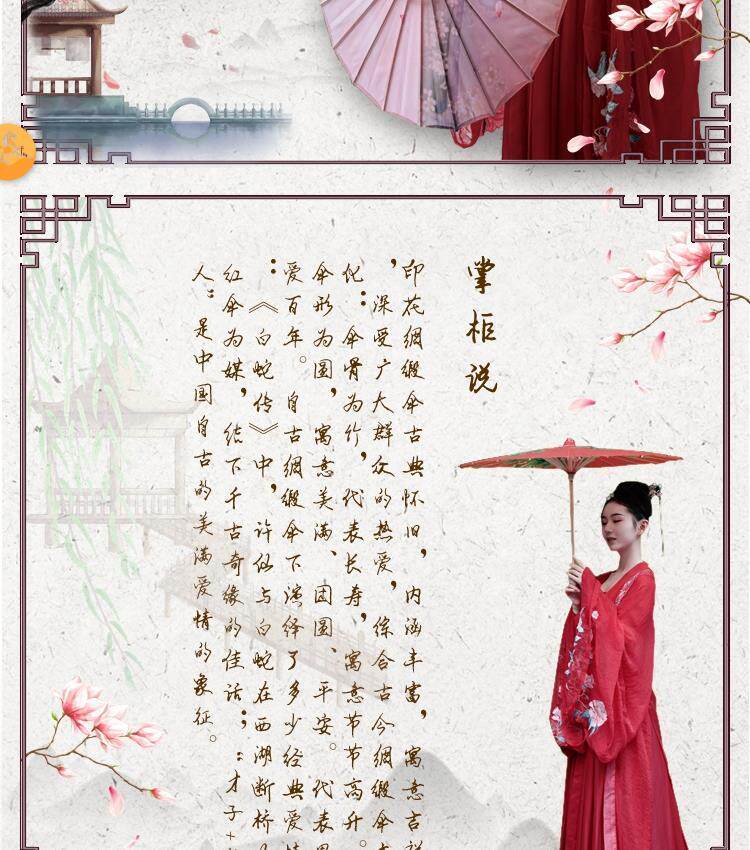 掌柜说
印花绸缎伞古典怀旧，内涵丰富，寓意吉祥
，深受广大群众的热爱，综合古今绸缎伞
化：伞骨为竹，代表长寿，寓意节节高升。
伞形为圆，寓意美满、团圆、平安。代表
爱百年。自古绸缎伞下演绎了多少经典爱
：《白蛇传》中，许仙与白蛇在西湖断桥
红伞为媒，结下千古奇缘的佳话；：才子+
人：是中国自古的美满爱情的象征。